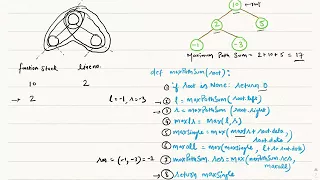 10 → root
2 5
-1 -3
Maximum Path Sum = 2+10+5 = 17
function stack line no.
10 2
→ 2 l = -1, r = -3
res = (-1, -3) = -1
def maxPathSum(root):
① if root is None: return 0
② l = maxPathSum(root.left)
③ r = maxPathSum(root.right)
④ maxlr = max(l,r)
⑤ maxsingle = max(maxlr + root.data, root.data)
⑥ maxall = max(maxsingle, l+r+root.data)
⑦ maxPathSum.res = max(maxPathSum.res, maxall)
⑧ return maxsingle